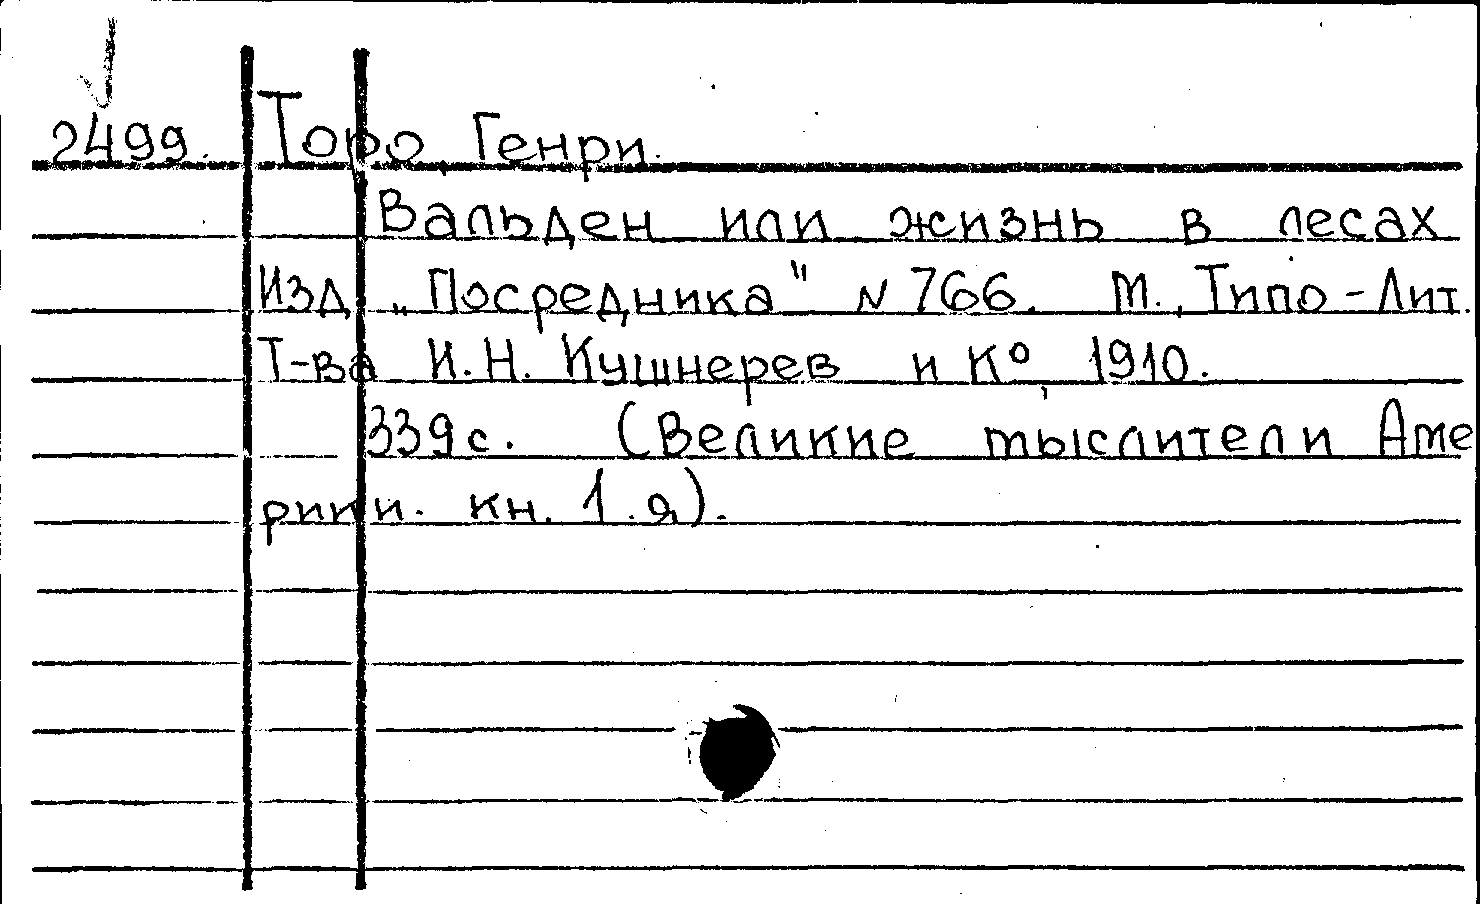 2499. Торо, Генри.
Вальден или жизнь в лесах
Изд. „Посредника" N 766. М., Типо-Лит.
Т-ва И.Н. Кушнерев и К°, 1910.
339с. (Великие мыслители Аме
рики. кн. 1.я).